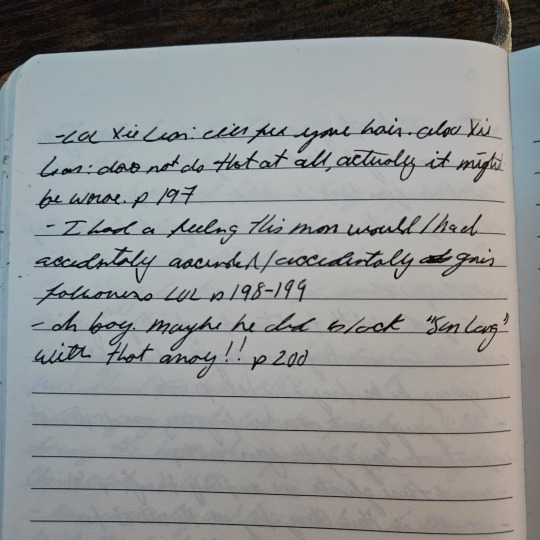 -LOL Xie Lian: i'll fix your hair. also Xie
Lian: does not do that at all, actually it might
be worse. p 197
- I had a feeling this man would/had
accidntaly ascended/accidentaly gain
followers LOL p198-199
- oh boy. maybe he did block "San Lang"
with that array!! p 200